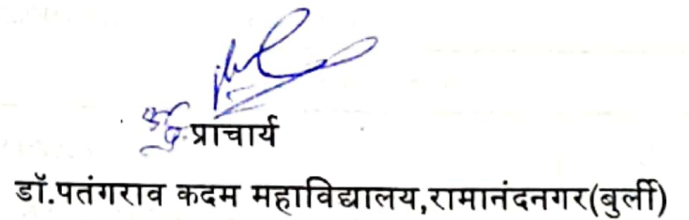 प्राचार्य
डॉ.पतंगराव कदम महाविद्यालय,रामानंदनगर(बुर्ली)